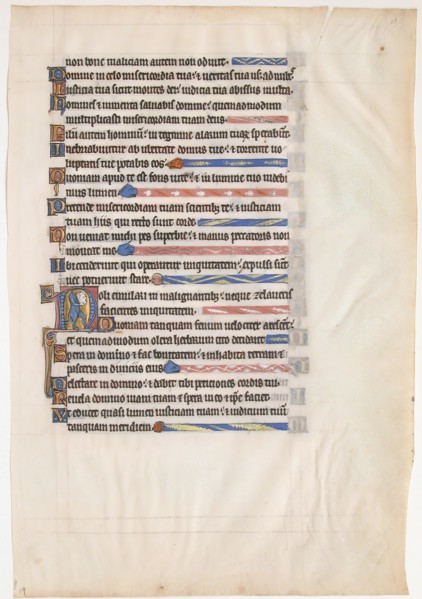 non bone maliciam autem non odivit.
Domine in celo misericordia tua: et veritas tua usq; ad nubes
Iusticia tua sicut montes dei: iudicia tua abissus multa.
Homines et iumenta salvabis domine: quemadmodum
multiplicasti misericordiam tuam deus.
Filii autem hominum: in tegmine alarum tuarum sperabunt.
Inebriabuntur ab ubertate domus tue: et torrente vo
luptatis tue potabis eos.
Quoniam apud te est fons vite: et in lumine tuo videbi
mus lumen.
Pretende misericordiam tuam scientibus te: et iusticiam
tuam hiis qui recto sunt corde.
Non veniat michi pes superbie: et manus peccatoris non
moveat me.
Ibi ceciderunt qui operantur iniquitatem: expulsi sunt
nec potuerunt stare.
Noli emulari in malignantibus: neque zelaveris
facientes iniquitatem.
Quoniam tanquam fenum velociter arescent:
et quemadmodum olera herbarum cito decident.
Spera in domino et fac bonitatem: et inhabita terram et
pasceris in diviciis eius.
Delectare in domino: et dabit tibi peticiones cordis tui.
Revela domino viam tuam et spera in eo: et ipse faciet.
Et educet quasi lumen iusticiam tuam: et iudicium tuum
tanquam meridiem.